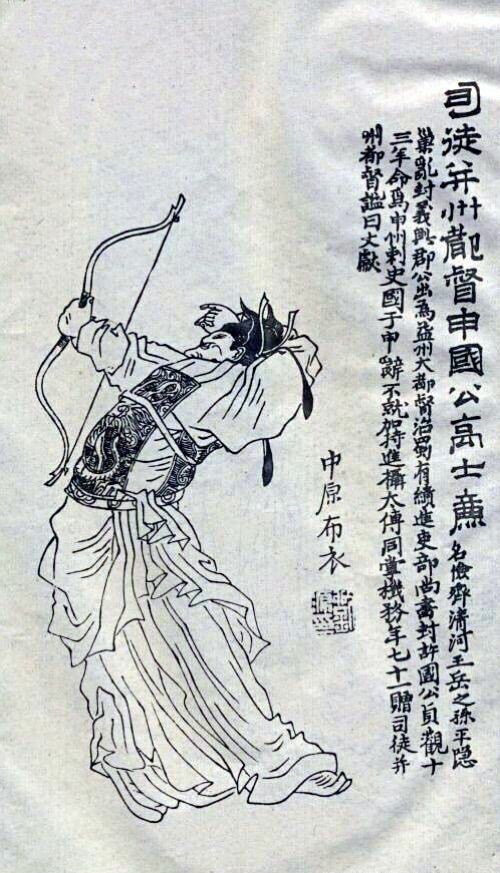 司徒并州都督申國公高士廉 名儉齊清河王岳之孫平隐
巢亂封義興郡公出為益州大都督治蜀有績進吏部尚書封許國公貞觀十
三年命為申州刺史國于申辭不就加特進攝太傅同掌機務年七十一贈司徒并
州都督諡曰文獻
中原布衣